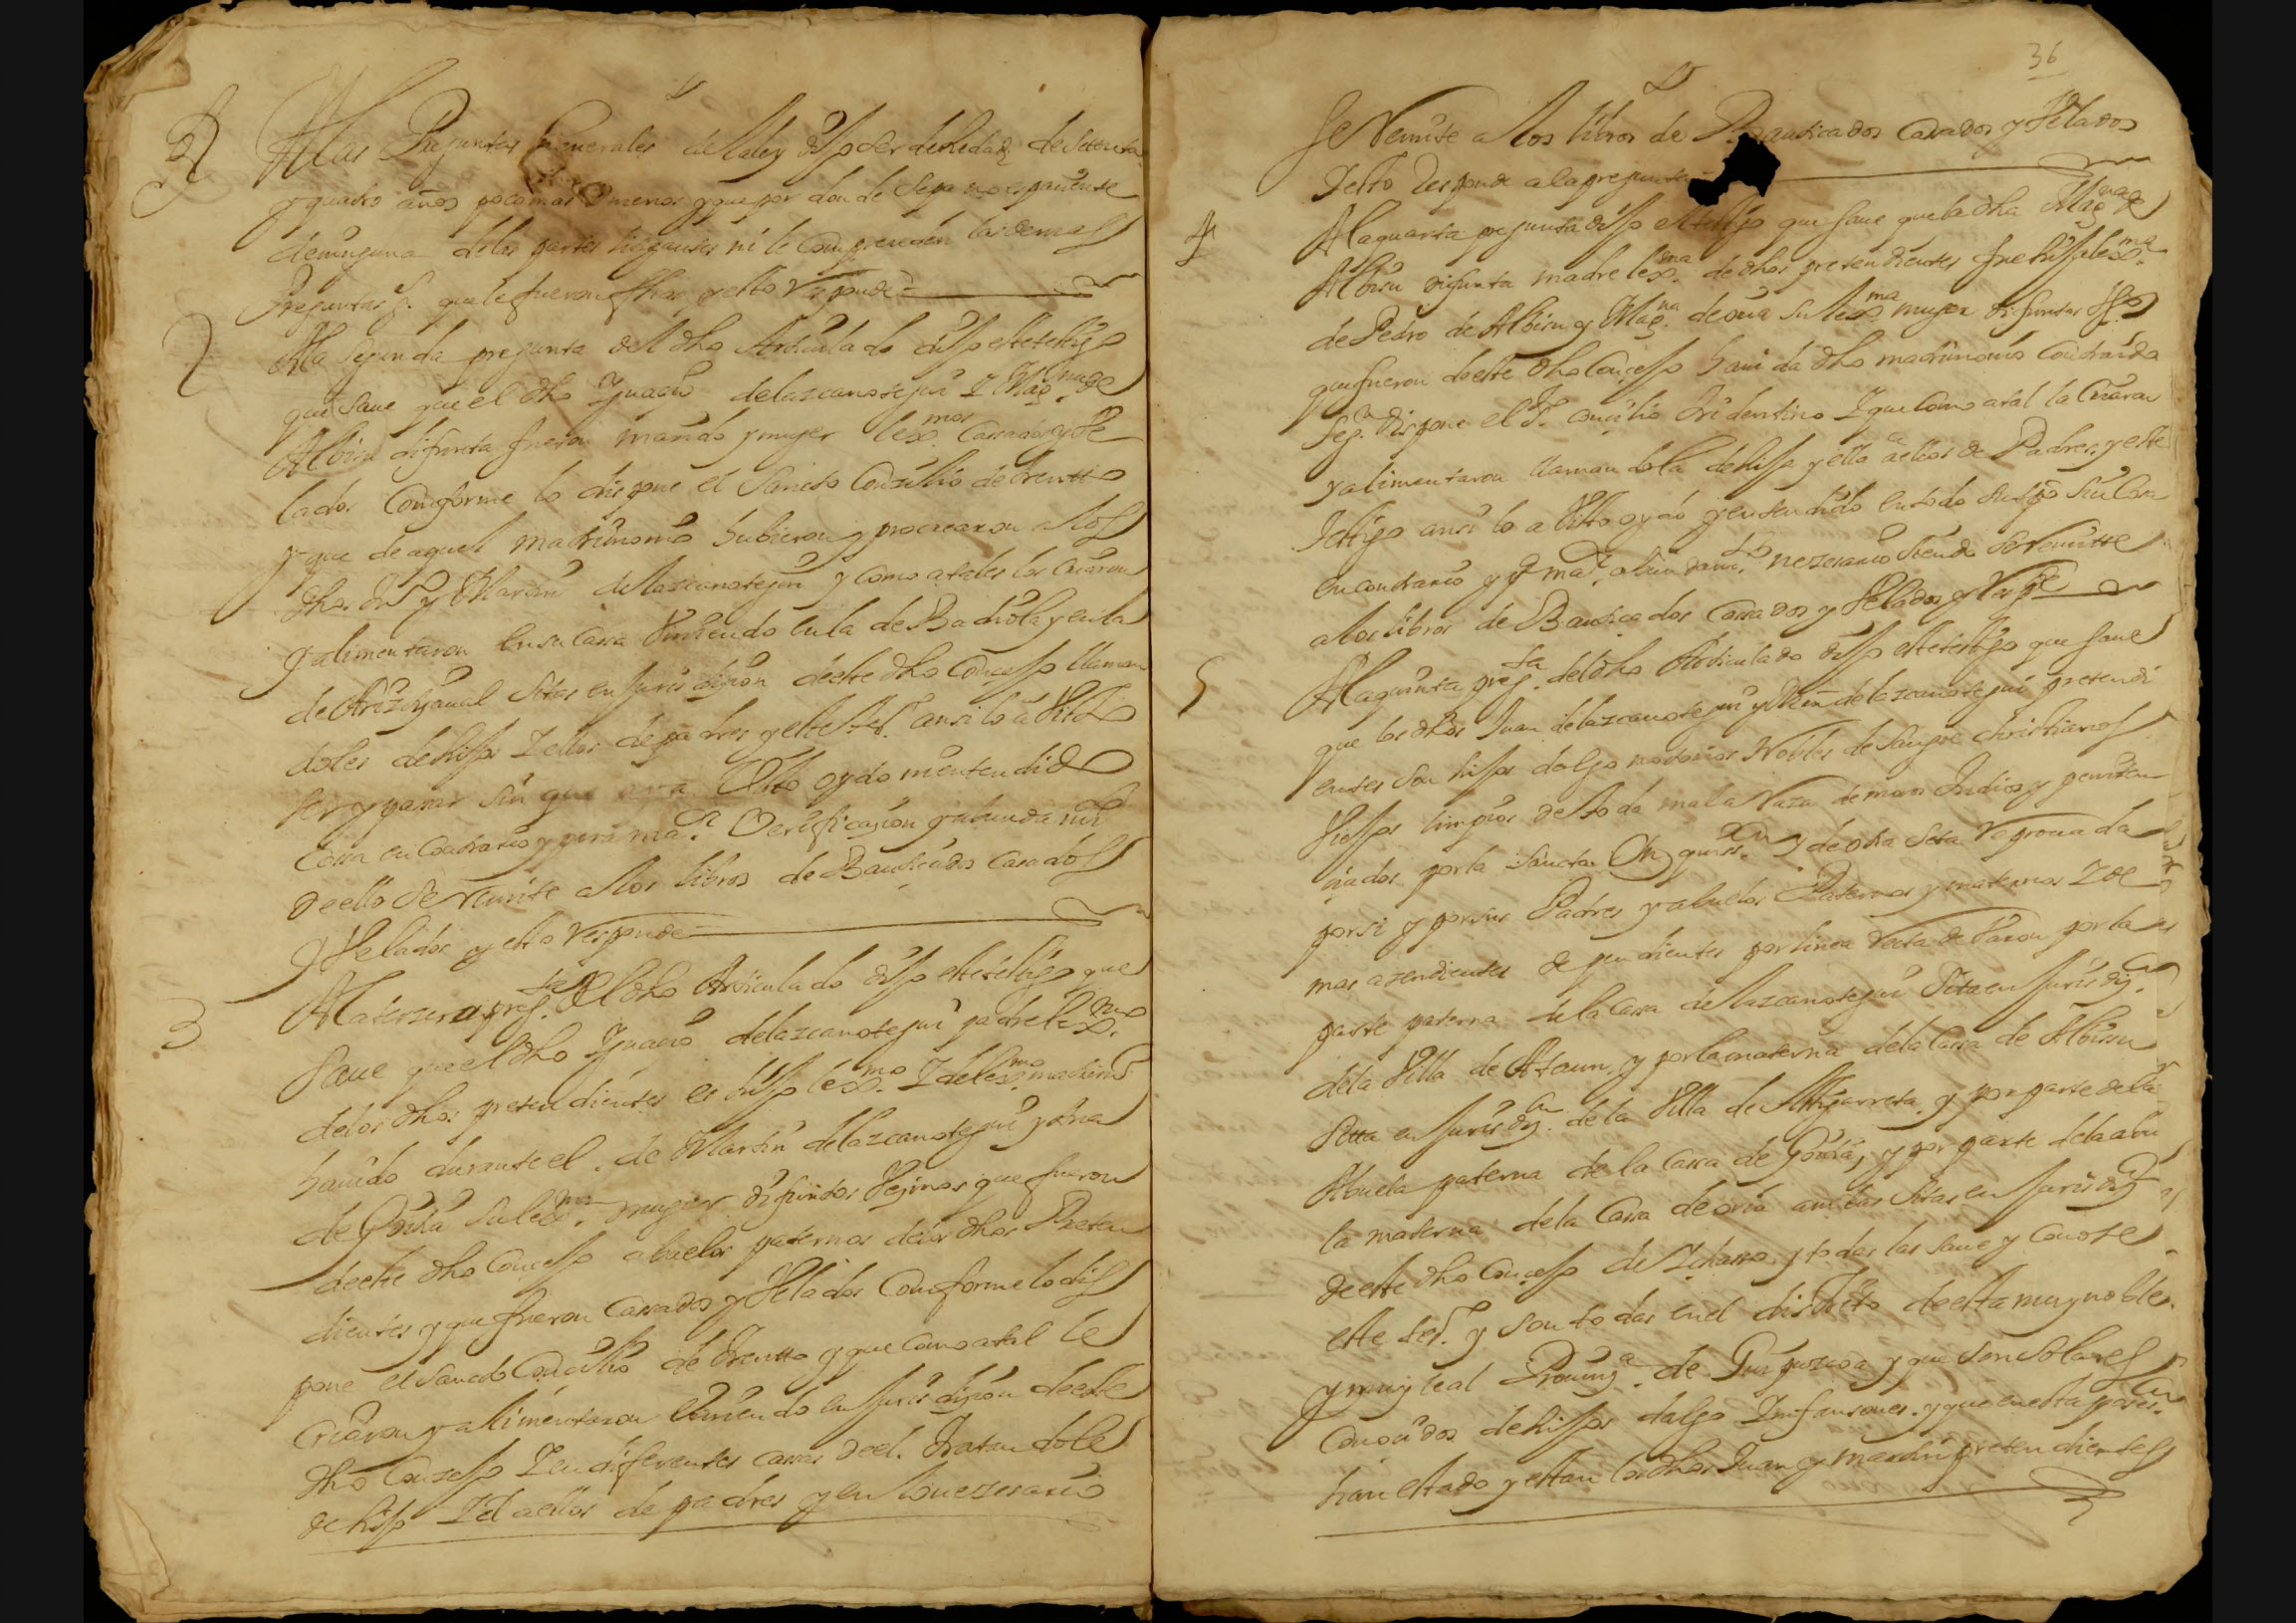 A las Preguntas Generales de la ley dijo ser de hedad de setenta
y quatro años poco mas o menos y que por donde sepa no es pariente
de ninguna de las partes litigantes ni le comprenden las demas
Preguntas g. que le fueron fhas y esto responde
2 A la segunda pregunta del dho Articulado dijo este testigo
que saue que el dho Ygnacio de lazcanotegui y Mag.na de
Albisu difunta fueron marido y muger lex.mos Cassados y Ve
lados Comforme lo dispone el Sancto Consilio de trento
y que de aquel matrimonio hubieron y procrearon a los
dhos Ju.o y Martin de lazcanotegui y como a tales los criaron
y alimentaron en su Cassa viuiendo en la de Badiola y en la
de sitas en jurisdizion deeste dho Concejo llaman
doles de hijos y ellos de padres y este tes.o ansi lo a visto
ser y pasar sin que aya visto oydo ni entendido
cossa en contrario y para ma.r Verificazion y abundami.o
de ello se remite a los libros de Bautiçados Casados
y Velados y esto responde
3 A la terzera preg.ta del dho Articulado dijo este testigo que
saue que el dho Ygnacio de lazcanotegui padre lex.mo
de los dhos pretendientes es hijo lex.mo y de lex.mo matrim.o
hauido durante el de Martin de lazcanotegui y
de Goitia su lex.ma muger difuntos Vezinos que fueron
deeste dho Concejo abuelos paternos de los dhos Preten
dientes y que fueron Cassados y Velados Comforme lo dis
pone el Sancto Consilio de Trento y que como a tal le
criaron y alimentaron viuiendo en jurisdizion deeste
dho Conzejo y en diferentes cassas deel. tratandole
de hijo y el a ellos de padres y en lo nezesario
36
Se Remite a los libros de Bautiçados Casados y Velados
y esto responde a la pregunta
4 A la quarta pregunta dijo el testigo que saue que la dha Mag.na de
Albisu difunta madre lex.ma de dhos pretendientes fue hija lex.ma
de Pedro de Albisu y Mag.na de oria su lex.ma muger difuntos
que fueron deeste dho Concejo hauida dho matrimonio Contraido
Seg.n dispone el S. concilio tridentino y que como a tal la Criaron
y alimentaron llamandola de hija y ella a ellos de Padres, y este
testigo ansi lo a visto oydo y entendido en todo su tpo sin cosa
en contrario y p.a ma.r abundami.to nezesario siendo se Remitte
a los libros de Bautiçados Cassados y Velados y resp.de
5 A la quinta preg.ta del dho Articulado dijo este testigo que saue
que los dhos Juan de lazcanotegui y Min de lazcanotegui pretendi
entes son hijos dalgo notorios Nobles de sangre christianos
Viejos limpios de toda mala Raza de moros Judios y peniten
ciados por la Sancta Inquiss.on y de otra seta Reprouada
por si y por sus Padres y abuelos Paternos y maternos y de
mas azendientes dependientes por linea Recta de Varon por la
parte paterna de la Cassa de lazcanotegui Sita en jurisdiz.on
de la Villa de Ataun, y por la materna de la Cassa de Albisu
Sitta en jurisdiz.on de la Villa de Astigarreta, y por parte de la
Abuela paterna de la Cassa de Goitia, y por parte de la abu
la materna de la Cassa de oria ambas sitas en jurisdiz.on
deeste dho Concejo de Ychasso, y todas las saue y conoze
este tes.o y son todas en el distrito deesta muy noble
y muy leal Prouinz.a de Guipuzcoa y que son solares
Conocidos de hijos dalgo Ynfansones. y que en esta poses.on
han estado y estan los dhos Juan y martin pretendientes